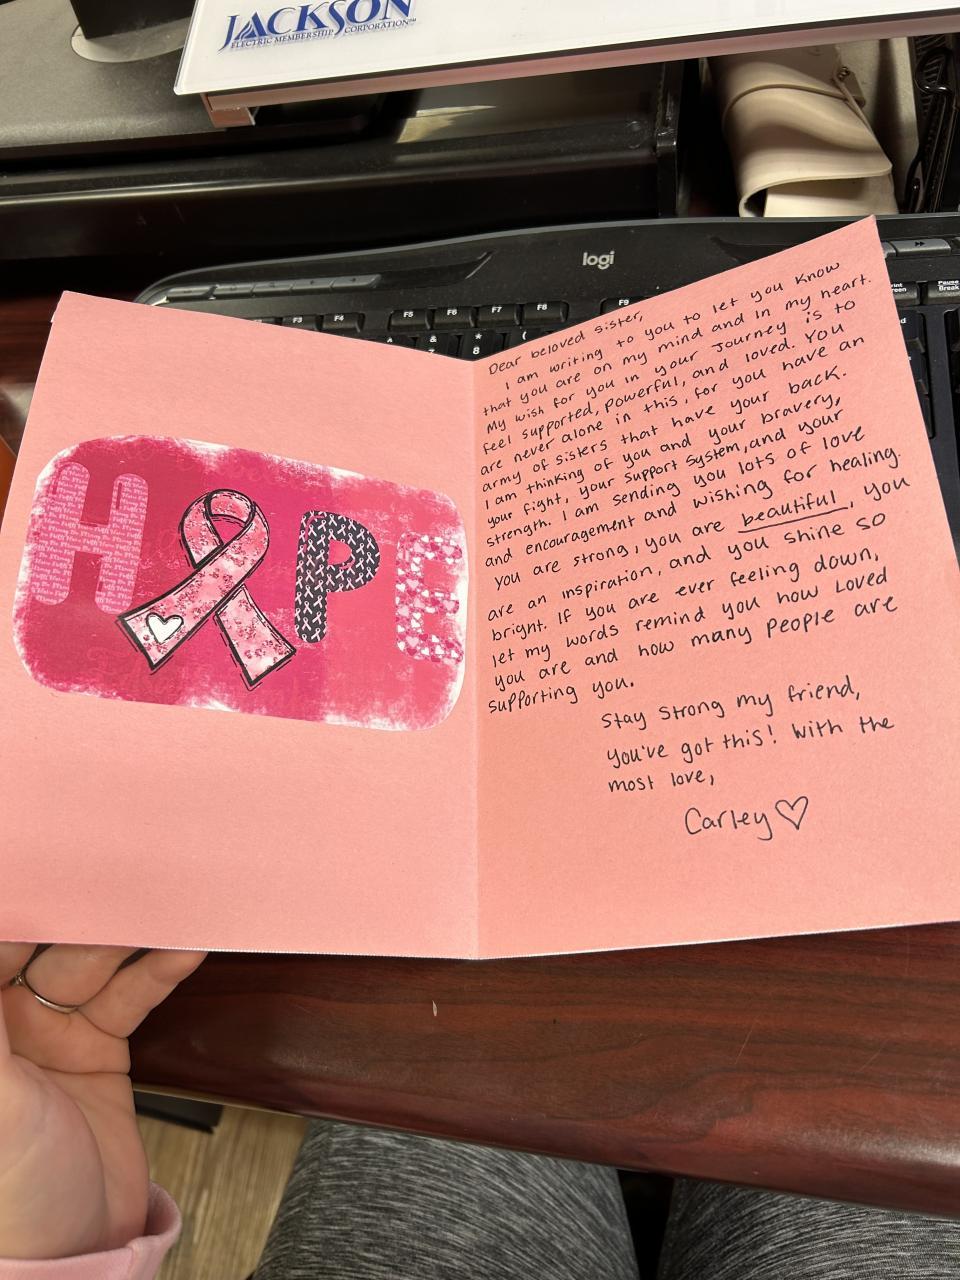 JACKSON
ELECTRIC MEMBERSHIP CORPORATION
logi
F3 F4 F5 F6 F7 F8 F9
Pause
Break
& * (
7 8
HOPE
Dear beloved sister,
I am writing to you to let you know
that you are on my mind and in my heart.
My wish for you in your journey is to
feel supported, powerful, and loved. You
are never alone in this, for you have an
army of sisters that have your back.
I am thinking of you and your bravery,
your fight, your support system, and your
strength. I am sending you lots of love
and encouragement and wishing for healing.
You are strong, you are beautiful, you
are an inspiration, and you shine so
bright. If you are ever feeling down,
let my words remind you how loved
you are and how many people are
supporting you.
Stay strong my friend,
you've got this! With the
most love,
Carley♡